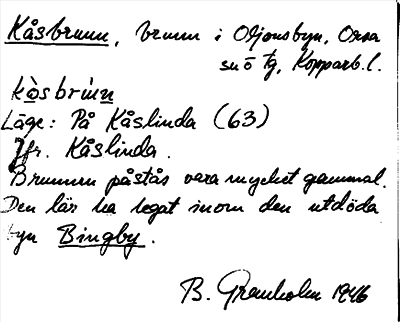 Kåsbrunn, brunn i Oljonsbyn, Orsa
sn ö tg, Kopparb.l.
kåsbrún
Läge: På Kåslinda (63)
Jfr. Kåslinda.
Brunnen påstås vara mycket gammal.
Den lär ha legat inom den utdöda
byn Bingby.
B. Granholm 1946